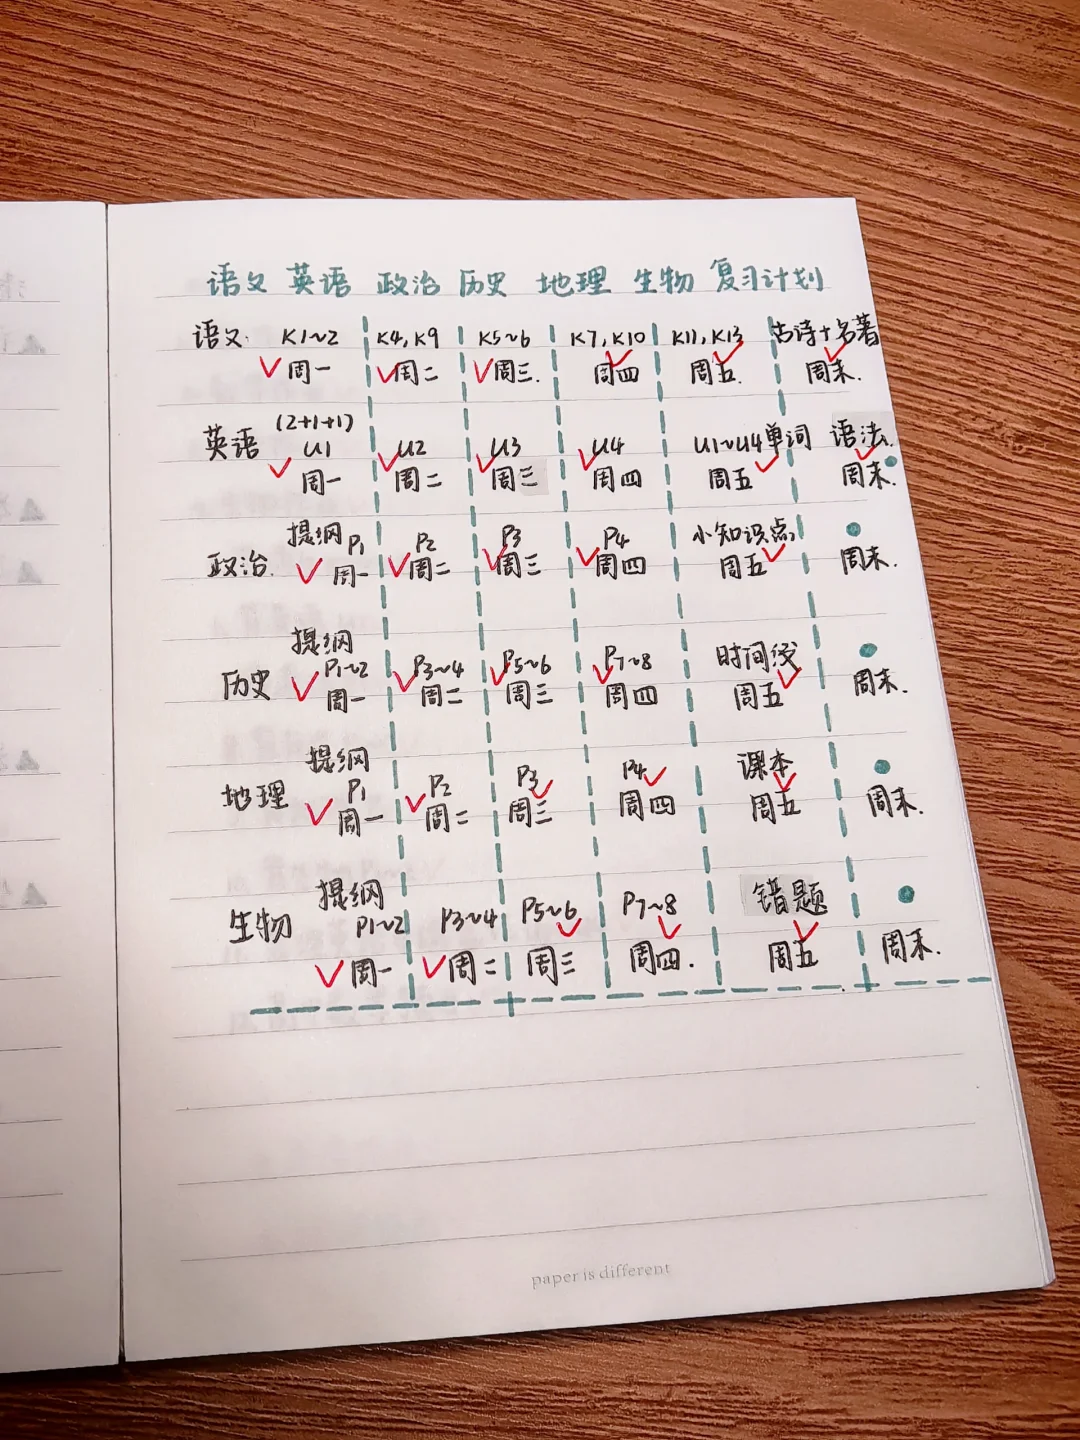 语文 英语 政治 历史 地理 生物 复习计划
语文. K1~2 K4,K9 K5~6 K7,K10 K11,K13 古诗+名著
周一 周二 周三. 周四 周五. 周末.
(2+1+1)
英语 U1 U2 U3 U4 U1~U4单词 语法.
周一 周二 周三 周四 周五 周末.
提纲 P1 P2 P3 P4 小知识点
政治. 周一 周二 周三 周四 周五 周末.
提纲
P1~2 P3~4 P5~6 P7~8 时间线
历史 周一 周二 周三 周四 周五 周末.
提纲
P1 P2 P3 P4 课本
地理 周一 周二 周三 周四 周五 周末.
提纲
生物 P1~2 P3~4 P5~6 P7~8 错题
周一 周二 周三 周四. 周五 周末.
paper is different